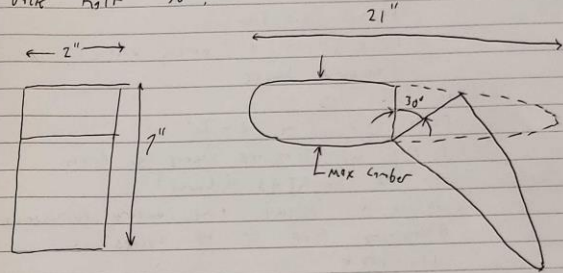 21"
2"
30°
7"
Max Camber